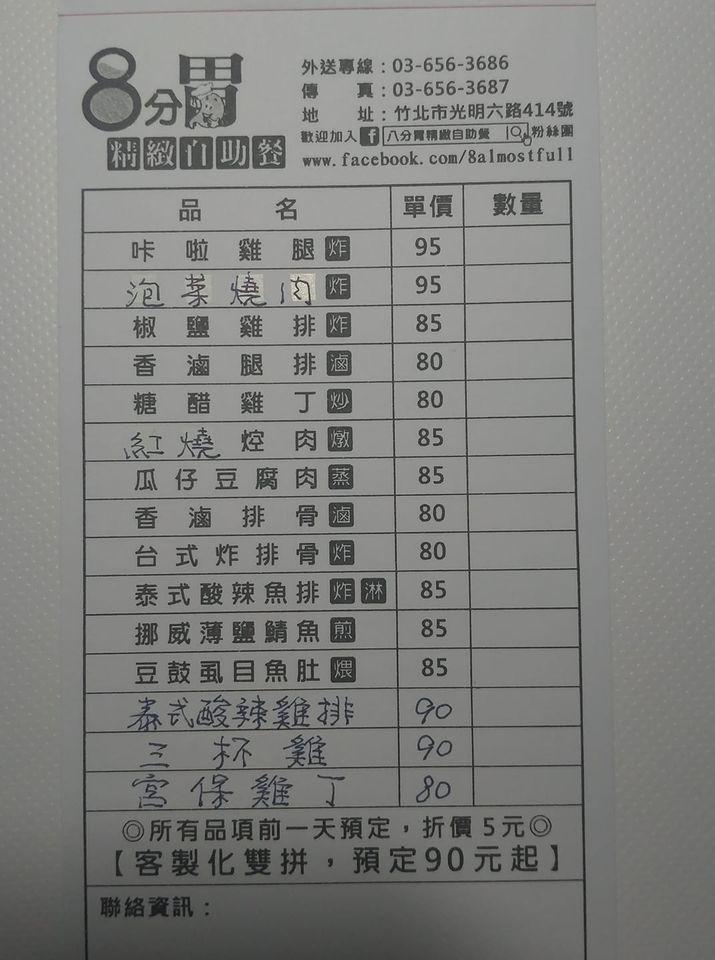 8分胃
精緻自助餐
外送專線：03-656-3686
傳　真：03-656-3687
地　址：竹北市光明六路414號
歡迎加入 f 八分胃精緻自助餐 粉絲團
www.facebook.com/8almostfull
品名 單價 數量
咔啦雞腿 炸 95
泡菜燒肉 炸 95
椒鹽雞排 炸 85
香滷腿排 滷 80
糖醋雞丁 炒 80
紅燒焢肉 燉 85
瓜仔豆腐肉 蒸 85
香滷排骨 滷 80
台式炸排骨 炸 80
泰式酸辣魚排 炸 淋 85
挪威薄鹽鯖魚 煎 85
豆鼓虱目魚肚 煨 85
泰式酸辣雞排 90
三杯雞 90
宮保雞丁 80
◎所有品項前一天預定，折價5元◎
【客製化雙拼，預定90元起】
聯絡資訊：